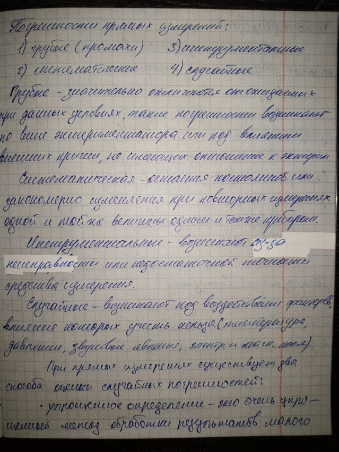 Погрешности прямых измерений:
1) грубые (промахи) 3) инструментальные
2) систематические 4) случайные
Грубые - значительно отличаются от ожидаемых
при данных условиях, такие погрешности возникают
по вине экспериментатора или под влиянием
внешних причин, не имеющих отношение к экспери
Систематическая - остается постоянной или
закономерно изменяется при повторных измерениях
одной и той же величины одним и тем же прибором.
Инструментальные - возникают из-за
неисправности или недостаточной точности
средства измерения.
Случайные - возникают под воздействием факторов,
влияние которых учесть нельзя (температура,
давление, звуковые явления, электр и магн. поля)
При прямых измерениях существует два
способа оценки случайных погрешностей:
· упрощенное определение - это очень упро-
щенный метод обработки результатов малого